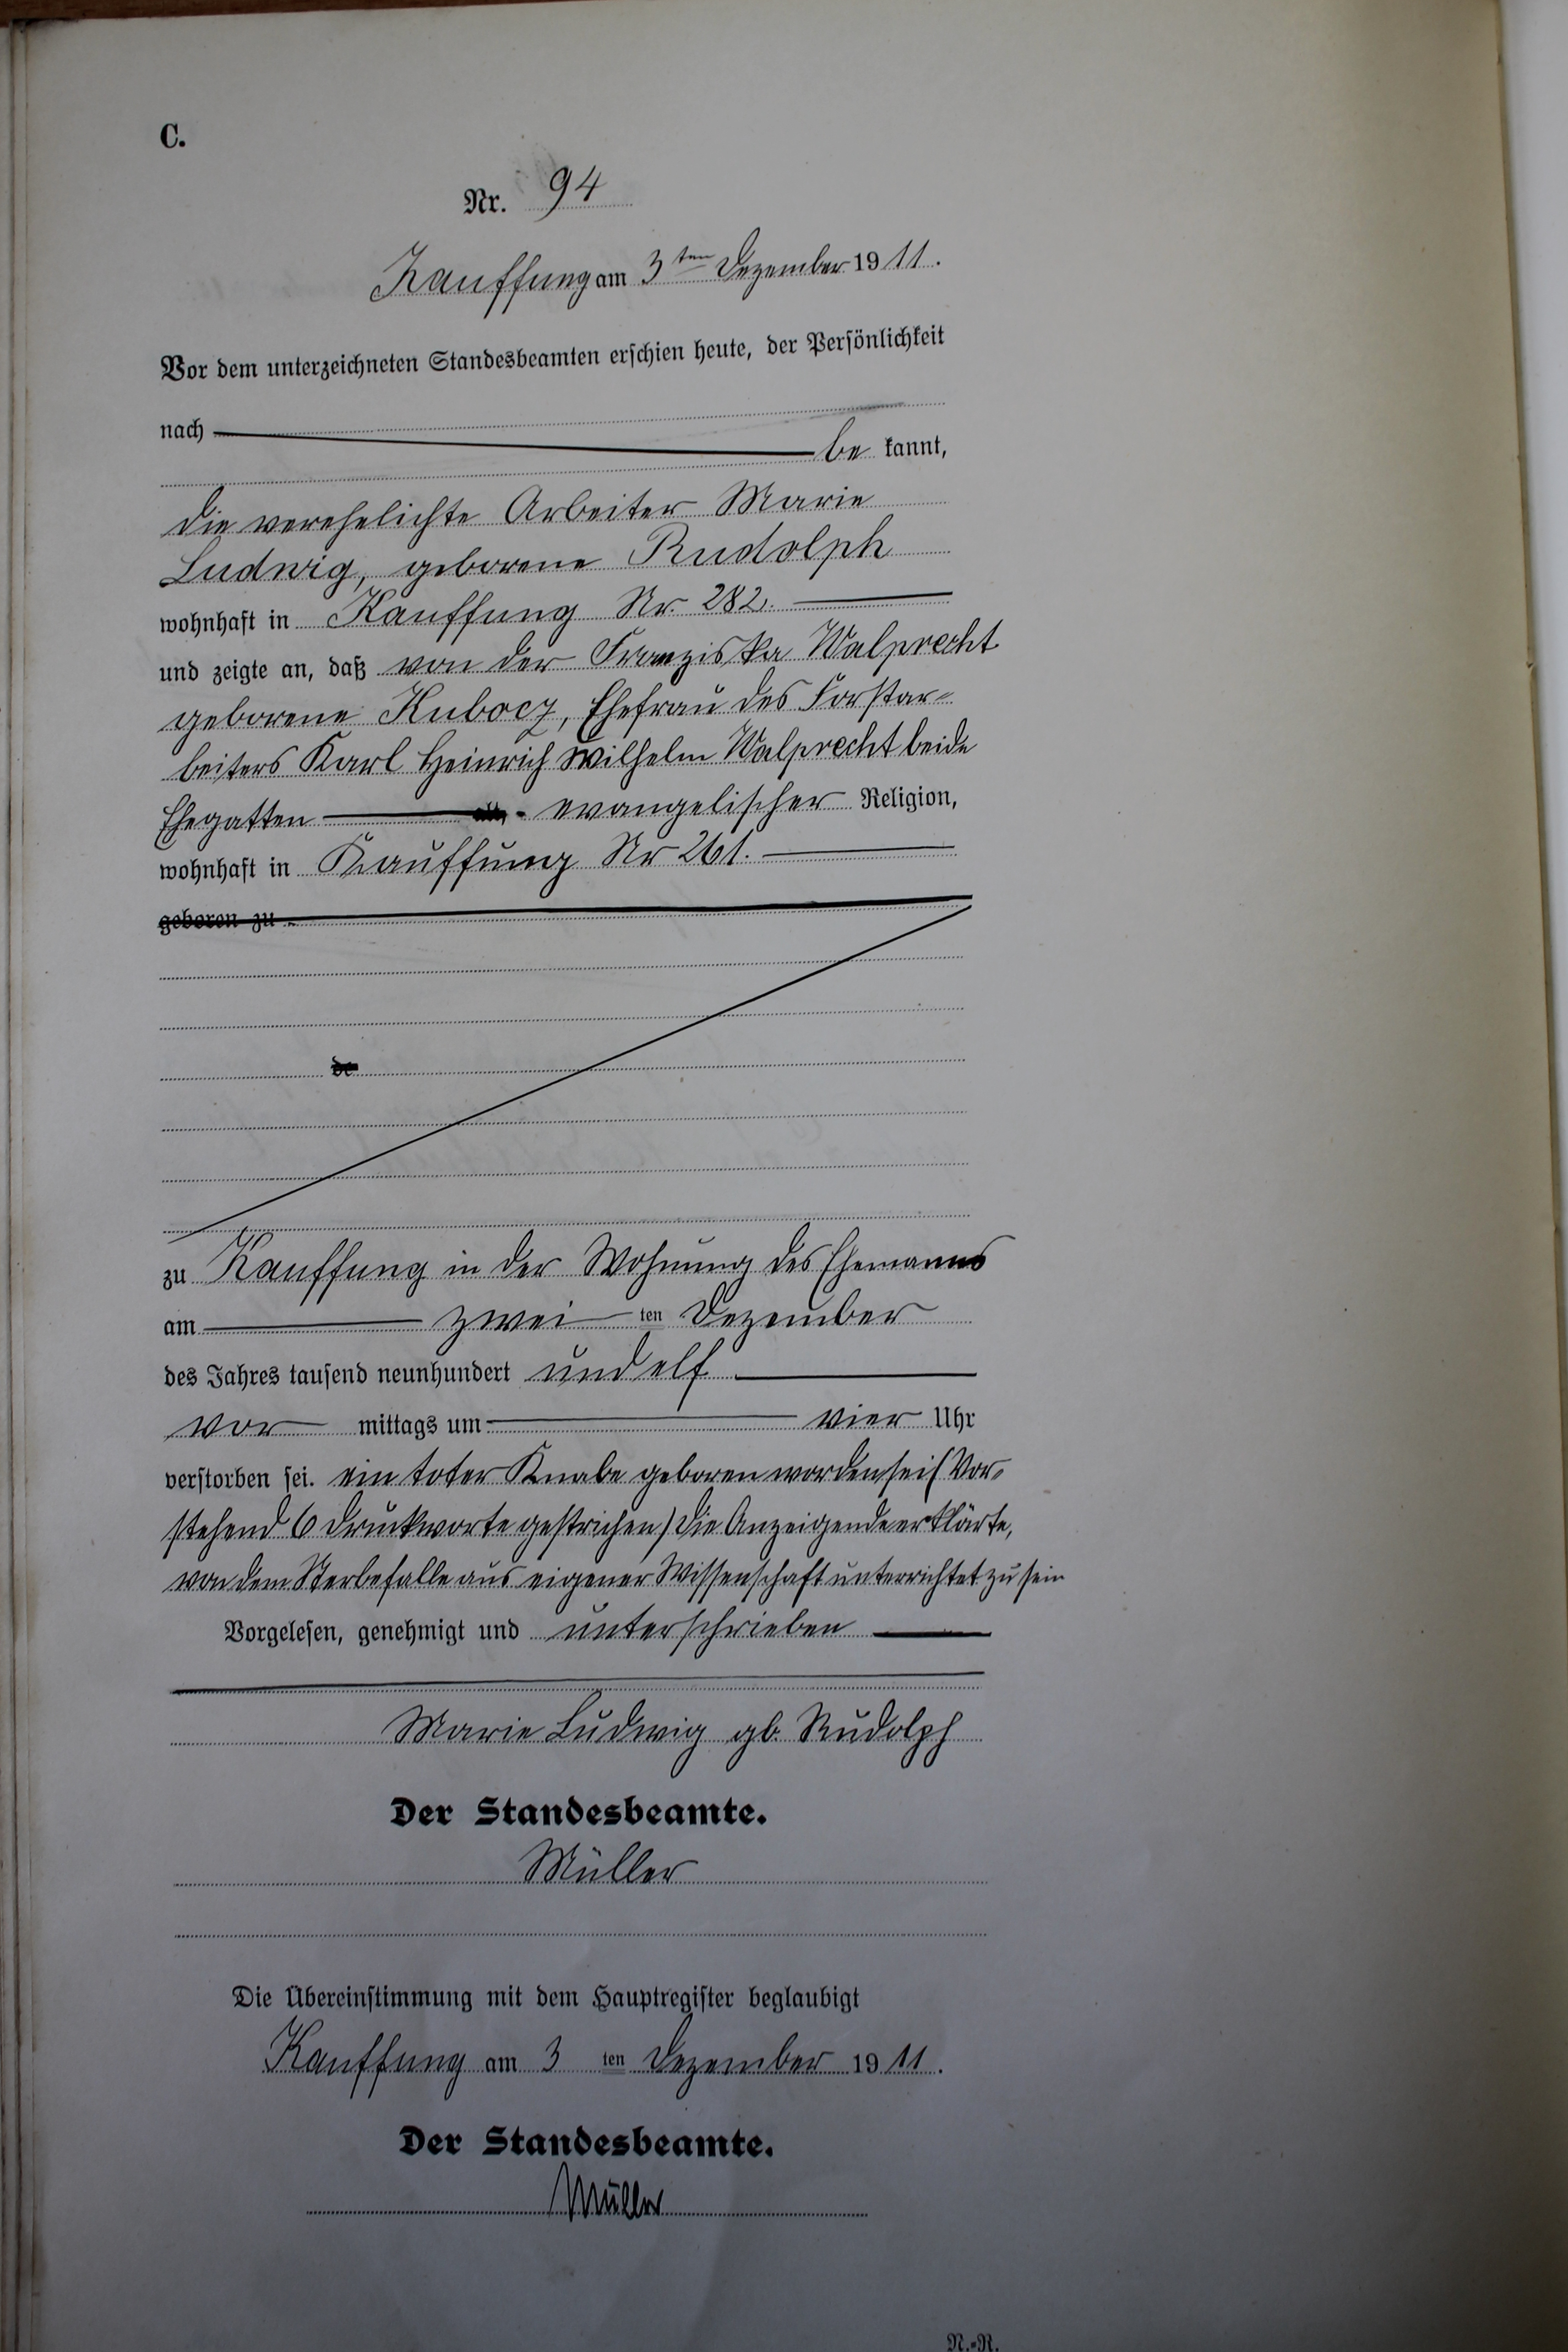 C.
Nr. 94
Kauffung am 3ten Dezember 1911.
Vor dem unterzeichneten Standesbeamten erschien heute, der Persönlichkeit
nach be kannt,
die verehelichte Arbeiter Marie
Ludwig, geborene Rudolph
wohnhaft in Kauffung Nr. 282.
und zeigte an, daß von der Franziska Walprecht
geborene Kubocz, Ehefrau des Forstar-
beiters Karl Heinrich Wilhelm Walprecht beide
Ehegatten alt, evangelischer Religion,
wohnhaft in Kauffung Nr 261.
geboren zu
de
zu Kauffung in der Wohnung des Ehemanns
am zwei ten Dezember
des Jahres tausend neunhundert und elf
vor mittags um vier Uhr
verstorben sei. ein toter Knabe geboren worden sei (Vor-
stehend 6 Druckworte gestrichen) Die Anzeigende erklärte,
von dem Sterbefalle aus eigener Wissenschaft unterrichtet zu sein
Vorgelesen, genehmigt und unterschrieben
Marie Ludwig gb. Rudolph
Der Standesbeamte.
Müller
Die Übereinstimmung mit dem Hauptregister beglaubigt
Kauffung am 3 ten Dezember 1911.
Der Standesbeamte.
Müller
N.-R.